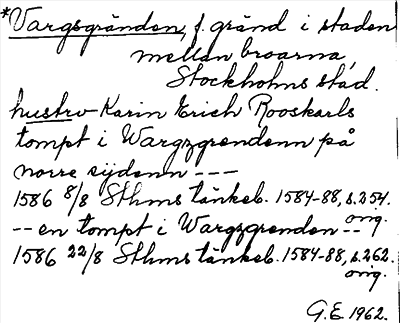 *Vargsgränden, f. gränd i staden
mellan broarna,
Stockholms stad.
hustro Karin Erich Rooskarls
tompt i Wargzgrendenn på
norre sijdenn ---
1586 8/8 Sthms tänkeb. 1584-88, s.254.
orig.
-- en tompt i Wargzgrenden --
1586 22/8 Sthms tänkeb. 1584-88, s.262.
orig.
G.E. 1962.